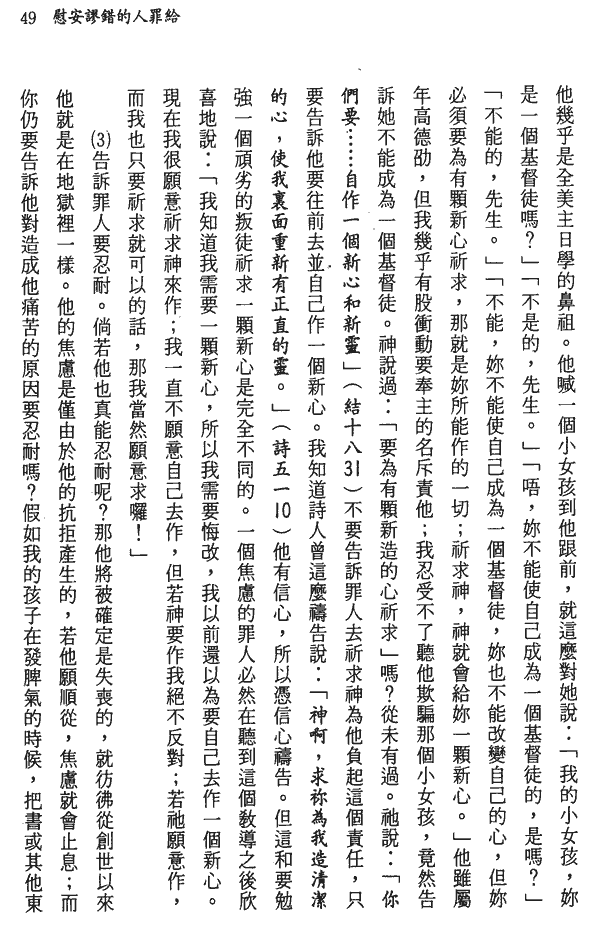 49　慰安謬錯的人罪給
他幾乎是全美主日學的鼻祖。他喊一個小女孩到他跟前，就這麼對她說：「我的小女孩，妳
是一個基督徒嗎？」「不是的，先生。」「唔，妳不能使自己成為一個基督徒的，是嗎？」
「不能的，先生。」「不能，妳不能使自己成為一個基督徒，妳也不能改變自己的心，但妳
必須要為有顆新心祈求，那就是妳所能作的一切；祈求神，神就會給妳一顆新心。」他雖屬
年高德劭，但我幾乎有股衝動要奉主的名斥責他；我忍受不了聽他欺騙那個小女孩，竟然告
訴她不能成為一個基督徒。神說過：「要為有顆新造的心祈求」嗎？從未有過。祂說：「你
們要……自作一個新心和新靈」（結十八31）不要告訴罪人去祈求神為他負起這個責任，只
要告訴他要往前去並自己作一個新心。我知道詩人曾這麼禱告說：「神啊，求祢為我造清潔
的心，使我裏面重新有正直的靈。」（詩五一10）他有信心，所以憑信心禱告。但這和要勉
強一個頑劣的叛徒祈求一顆新心是完全不同的。一個焦慮的罪人必然在聽到這個教導之後欣
喜地說：「我知道我需要一顆新心，所以我需要悔改，我以前還以為要自己去作一個新心。
現在我很願意祈求神來作；我一直不願意自己去作，但若神要作我絕不反對；若祂願意作，
而我也只要祈求就可以的話，那我當然願意求囉！」
(3)告訴罪人要忍耐。倘若他也真能忍耐呢？那他將被確定是失喪的，就彷彿從創世以來
他就是在地獄裡一樣。他的焦慮是僅由於他的抗拒產生的，若他願順從，焦慮就會止息；而
你仍要告訴他對造成他痛苦的原因要忍耐嗎？假如我的孩子在發脾氣的時候，把書或其他東